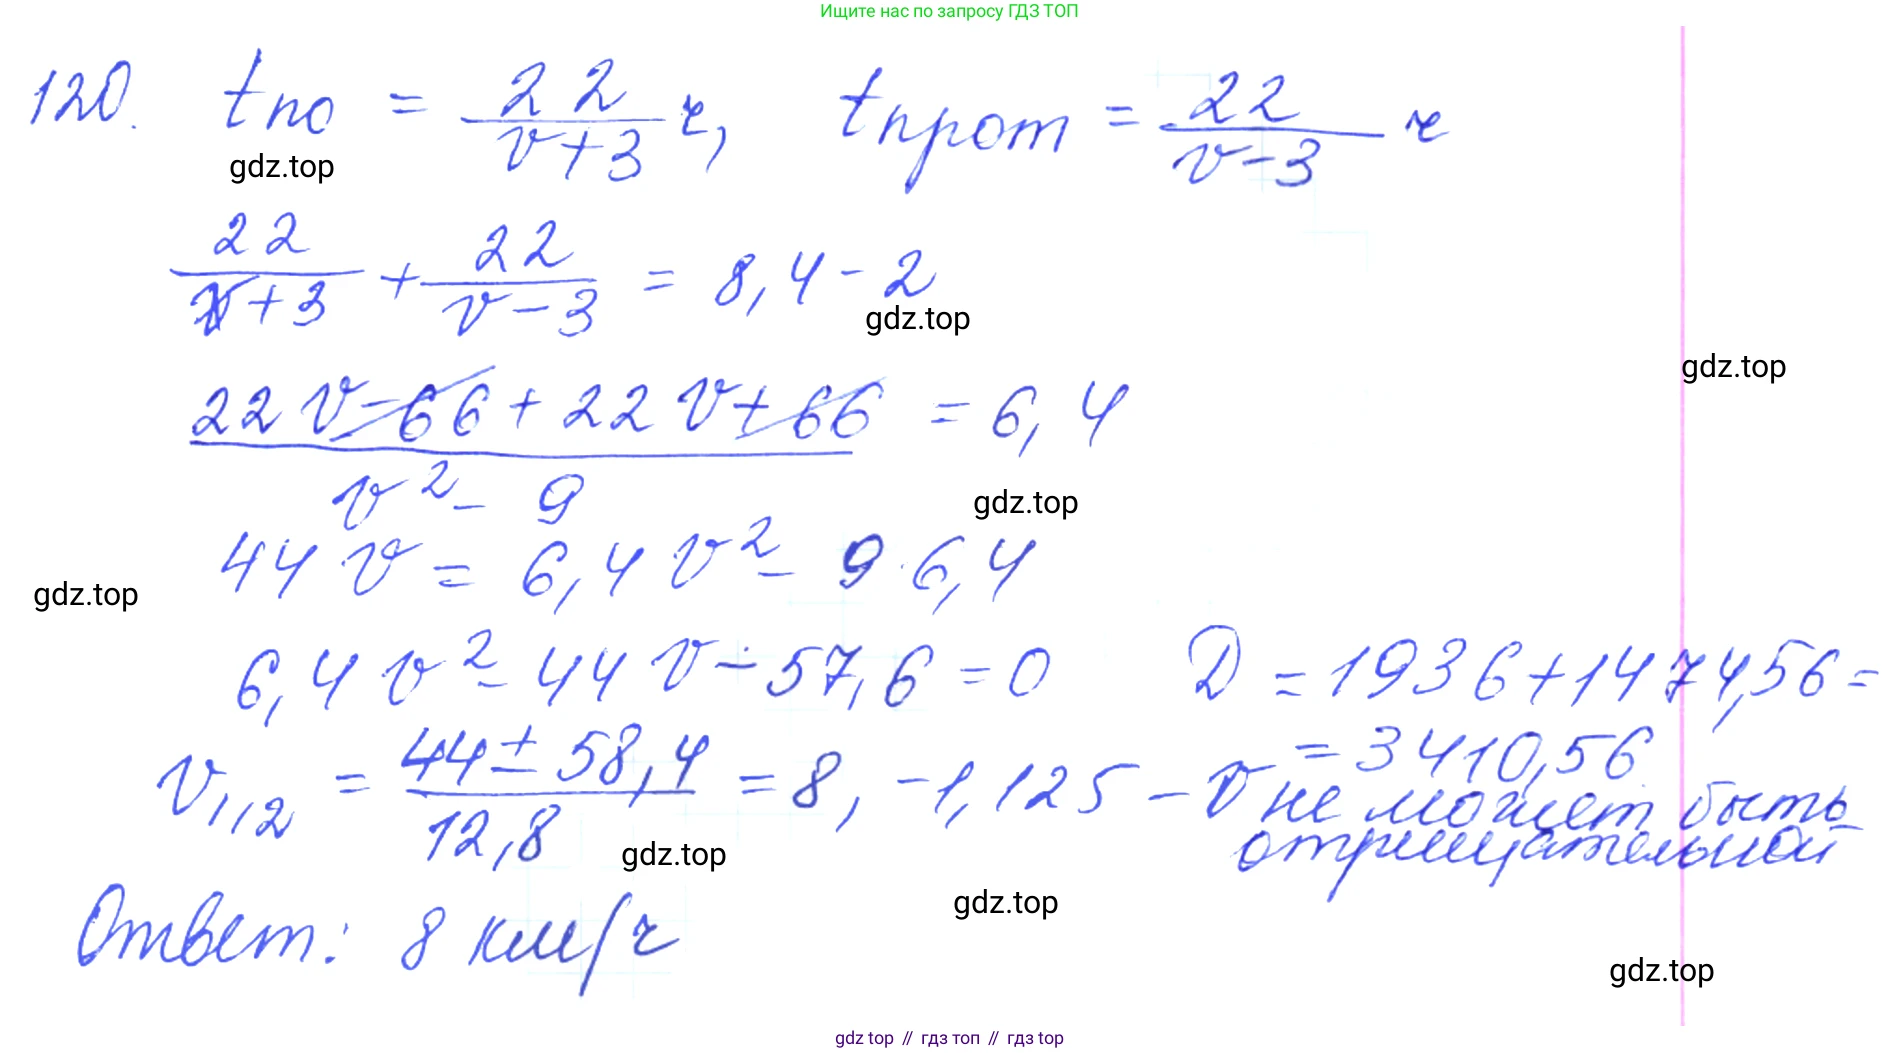 Ищите нас по запросу ГДЗ ТОП
120. tпо = 22/(v+3) ч, tпрот = 22/(v-3) ч
gdz.top
22/(v+3) + 22/(v-3) = 8,4 - 2
gdz.top
gdz.top
(22v-66+22v+66)/(v²-9) = 6,4
gdz.top
44v = 6,4v² - 9·6,4
gdz.top
6,4v² - 44v - 57,6 = 0 D = 1936+1474,56 =
= 3410,56
v1,2 = (44±58,4)/12,8 = 8, -1,125 - v не может быть
отрицательной
gdz.top
gdz.top
Ответ: 8 км/ч
gdz.top
gdz top // гдз топ // гдз top